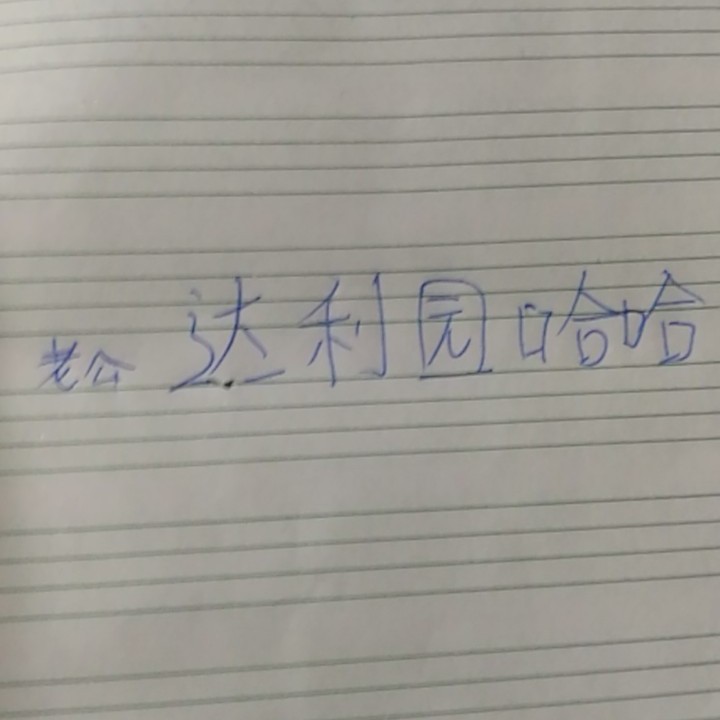 老公 达利园哈哈